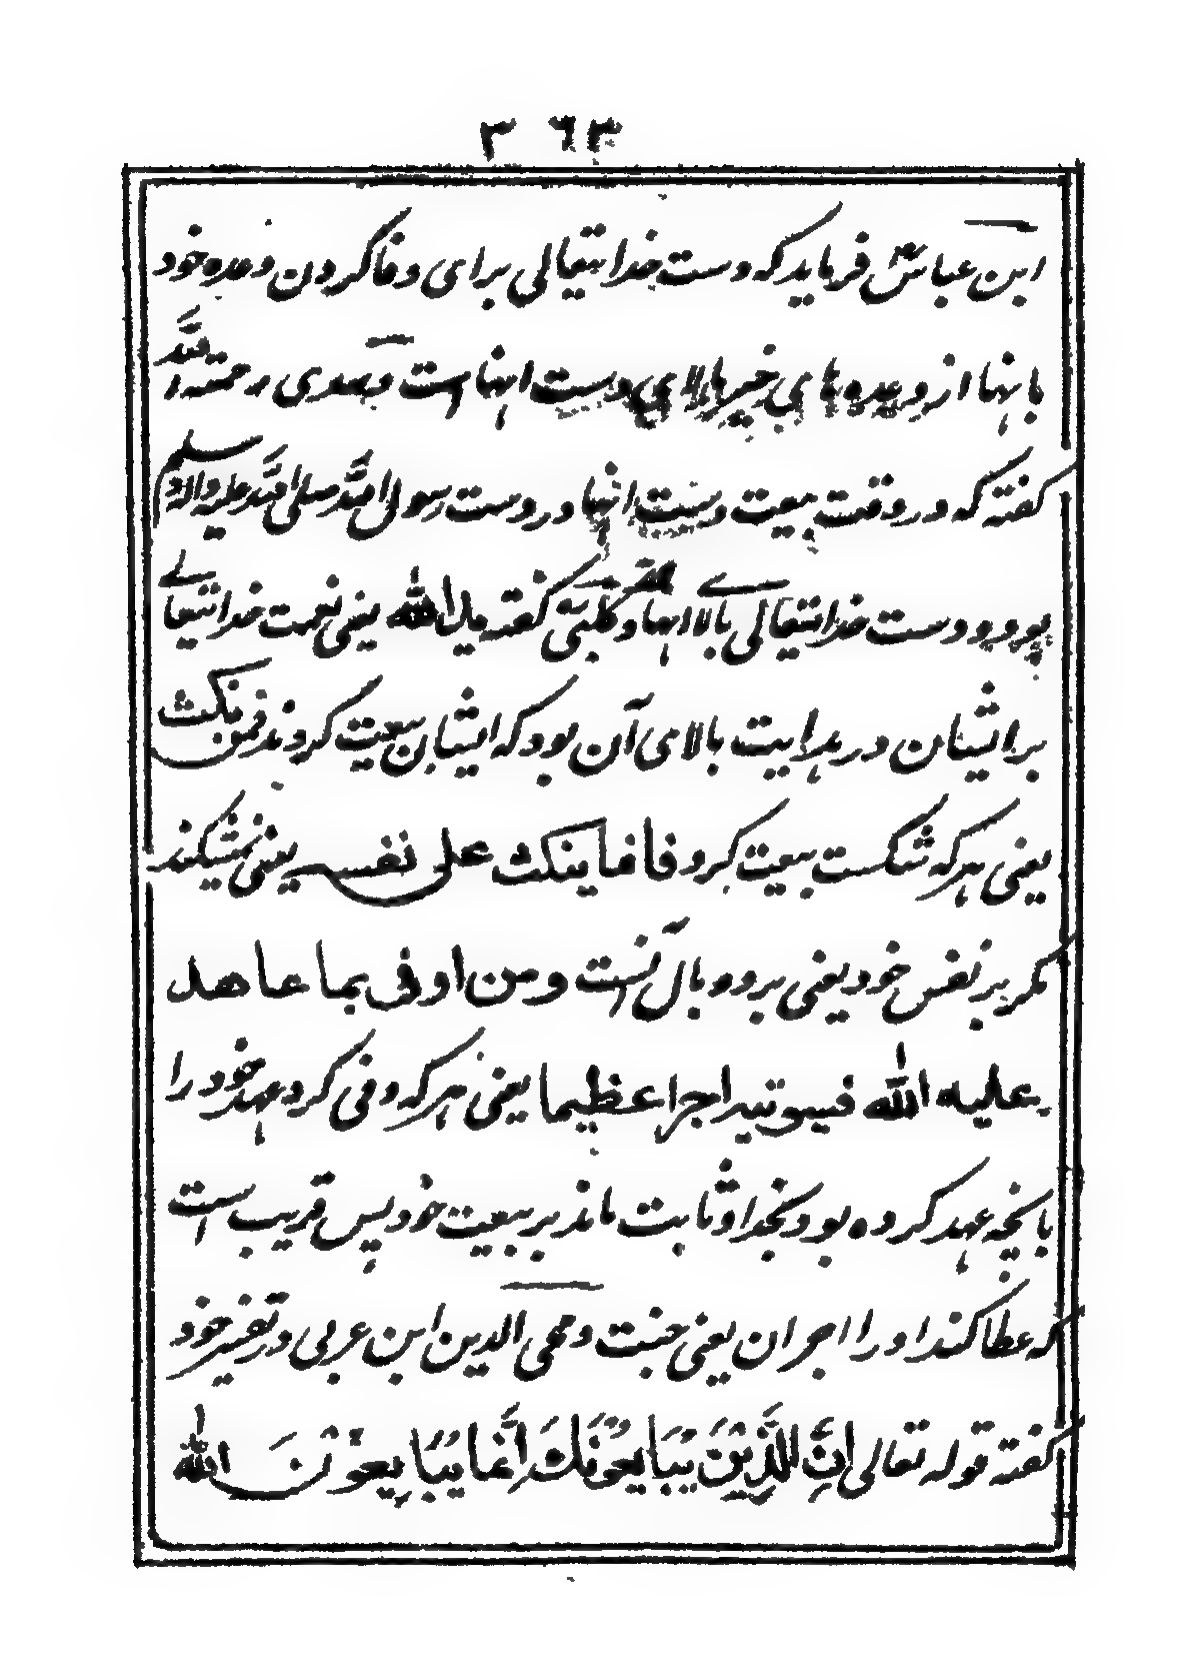 ٣٦٣
ابن عباس فرماید که دست خدا تعالی برای وفا کردن وعده خود
بانها از وعده های خیر بالای دست انها است و سدی رحمته الله
گفته که در وقت بیعت دست انها در دست رسول الله صلی الله علیه واله وسلم
بود و دست خدا تعالی بالا انها و کلبی گفته ید الله یعنی نعمت خدا تعالے
بر ایشان در هدایت بالای آن بود که ایشان بیعت کردند فمن نکث
یعنی هر که شکست بیعت کرد فانما ینکث علی نفسه یعنی نمشیکند
مگر بر نفس خود یعنی برو وبال آنست ومن اوفی بما عاهد
علیه الله فسیوتیه اجرا عظیما یعنی هر که وفی کرد عهد خود را
بانچه عهد کرده بود بخدا و ثابت ماند بر بیعت خود پس قریب است
که عطا کند او را اجر ان یعنی جنت و محی الدین ابن عربی در تفسیر خود
گفته قوله تعالی اِنَّ الَّذِیْنَ یُبَایِعُوْنَكَ اِنَّمَا یُبَایِعُوْنَ الله